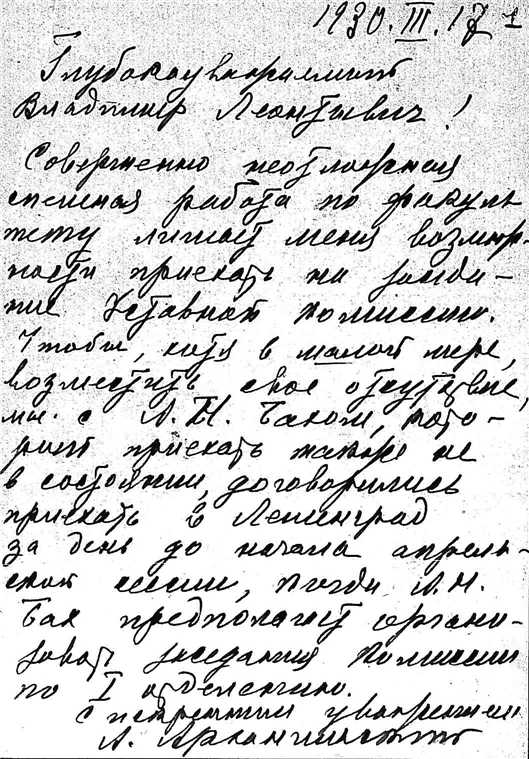 1930.III.17
Глубокоуважаемый
Владимир Леонтьевич!
Совершенно неотложная
спешная работа по факуль
тету лишает меня возмож
ности приехать на заседа-
ние Уставной Комиссии.
Чтобы, хотя в малой мере,
возместить свое отсутствие,
мы с А.Н. Бахом, кото-
рый приехать также не
в состоянии, договорились
приехать в Ленинград
за день до начала апрель-
ской сессии, когда А.Н.
Бах предполагает органи-
зовать заседания Комиссии
по I отделению.
С искренним уважением
А. Архангельский